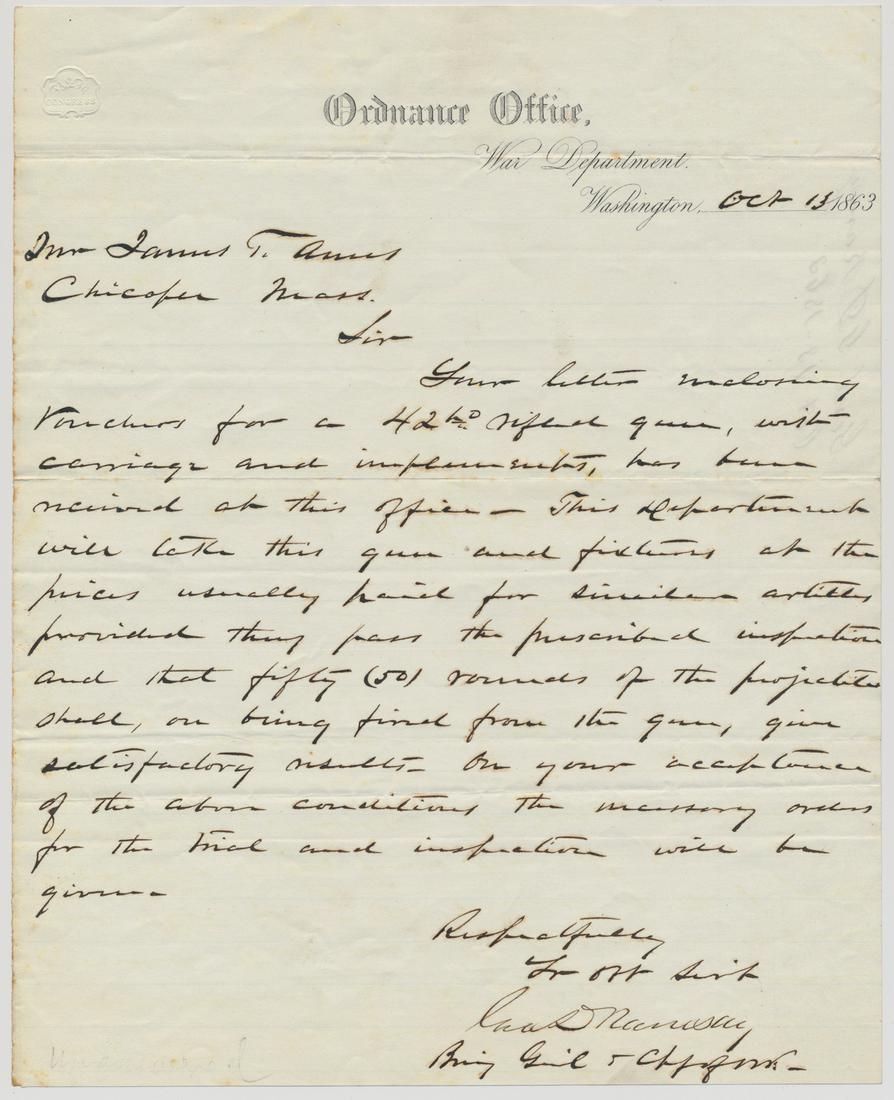 CONGRESS
Ordnance Office,
War Department.
Washington, Oct 13 1863
Mr James T. Ames
Chicopee Mass.
Sir
Your letter enclosing
vouchers for a 42 pd. rifled gun, with
carriage and implements, has been
received at this office – This Department
will take this gun and fixtures at the
prices usually paid for similar articles
provided they pass the prescribed inspection
and that fifty (50) rounds of the projectiles
shall, on being fired from the gun, give
satisfactory results – On your acceptance
of the above conditions the necessary orders
for the trial and inspection will be
given –
Respectfully
Yr Obt Servt
Geo D Ramsay
Brig Genl & Ch of Ord. –